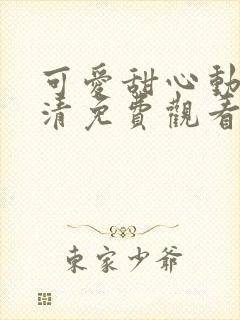 可愛甜心動
清免費觀看
東家少爺